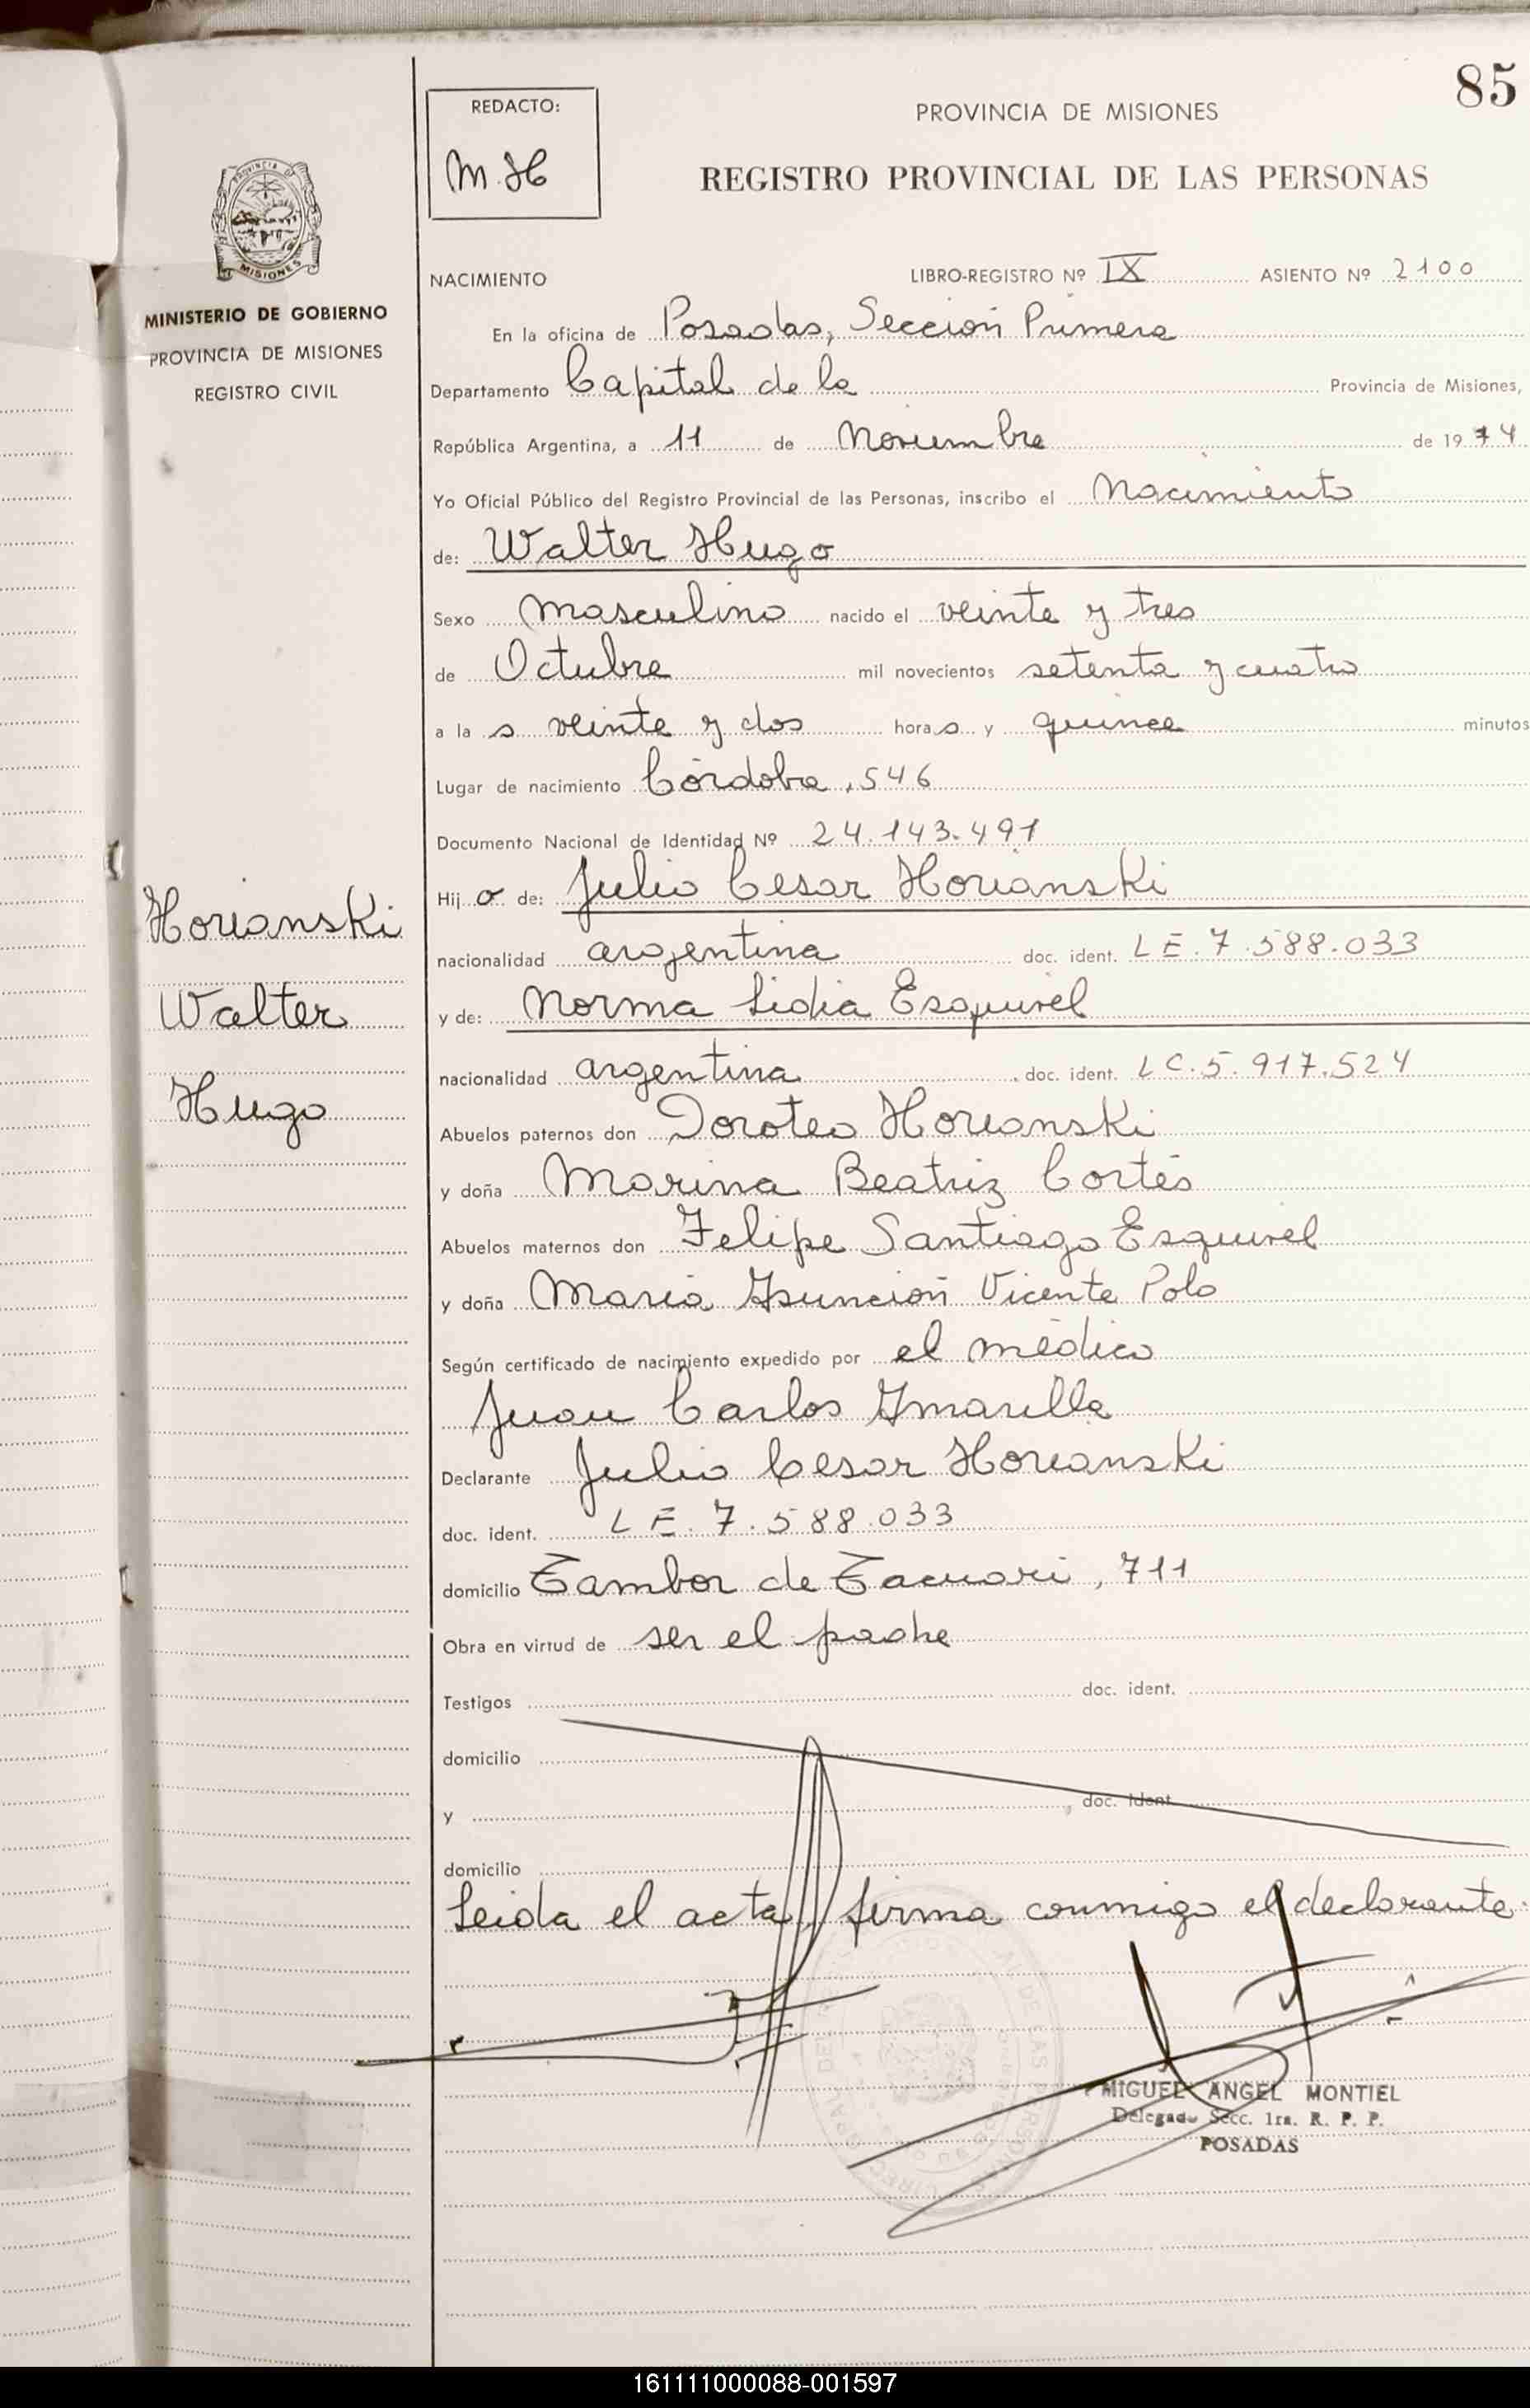 85
REDACTO:
M.H
PROVINCIA DE MISIONES
REGISTRO PROVINCIAL DE LAS PERSONAS
PROVINCIA
MISIONES
MINISTERIO DE GOBIERNO
PROVINCIA DE MISIONES
REGISTRO CIVIL
NACIMIENTO LIBRO-REGISTRO Nº IX ASIENTO Nº 2100
En la oficina de Posadas, Sección Primera
Departamento Capital de la Provincia de Misiones,
República Argentina, a 11 de Noviembre de 1974
Yo Oficial Público del Registro Provincial de las Personas, inscribo el Nacimiento
de: Walter Hugo
Sexo Masculino nacido el veinte y tres
de Octubre mil novecientos setenta y cuatro
a la s veinte y dos hora s y quince minutos
Lugar de nacimiento Córdoba, 546
Documento Nacional de Identidad Nº 24.143.491
Hij o de: Julio Cesar Horianski
nacionalidad argentina doc. ident. LE. 7.588.033
y de: Norma Lidia Esquivel
nacionalidad argentina doc. ident. LC. 5.917.524
Abuelos paternos don Doroteo Horianski
y doña Marina Beatriz Cortés
Abuelos maternos don Felipe Santiago Esquivel
y doña María Asunción Vicente Polo
Según certificado de nacimiento expedido por el médico
Juan Carlos Amarilla
Declarante Julio Cesar Horianski
doc. ident. LE. 7.588.033
domicilio Tambor de Tacuarí, 711
Obra en virtud de ser el padre
Testigos doc. ident.
domicilio
y doc. ident.
domicilio
Leída el acta, firma conmigo el declarante.
MIGUEL ANGEL MONTIEL
Delegado Secc. 1ra. R. P. P.
POSADAS
Horianski
Walter
Hugo
161111000088-001597